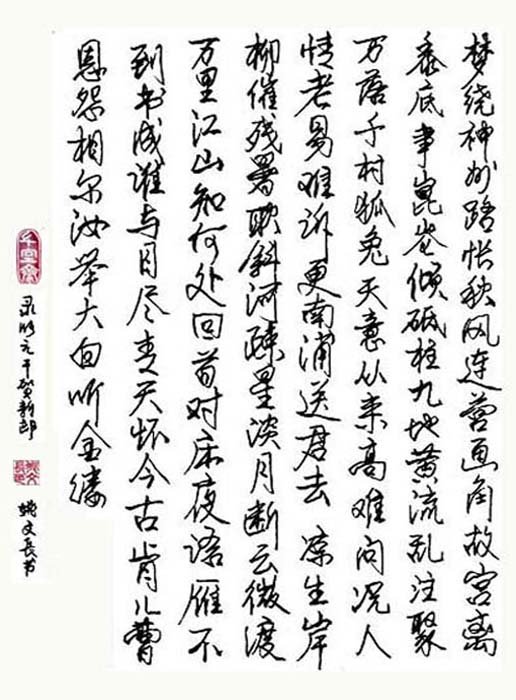 梦绕神州路怅秋风连营画角故宫离
黍底事昆仑倾砥柱九地黄流乱注聚
万落千村狐兔天意从来高难问况人
情老易难诉更南浦送君去凉生岸
柳催残暑耿斜河疏星淡月断云微渡
万里江山知何处回首对床夜语雁不
到书成谁与目尽青天怀今古肯儿曹
恩怨相尔汝举大白听金缕
录张元干贺新郎
文长书